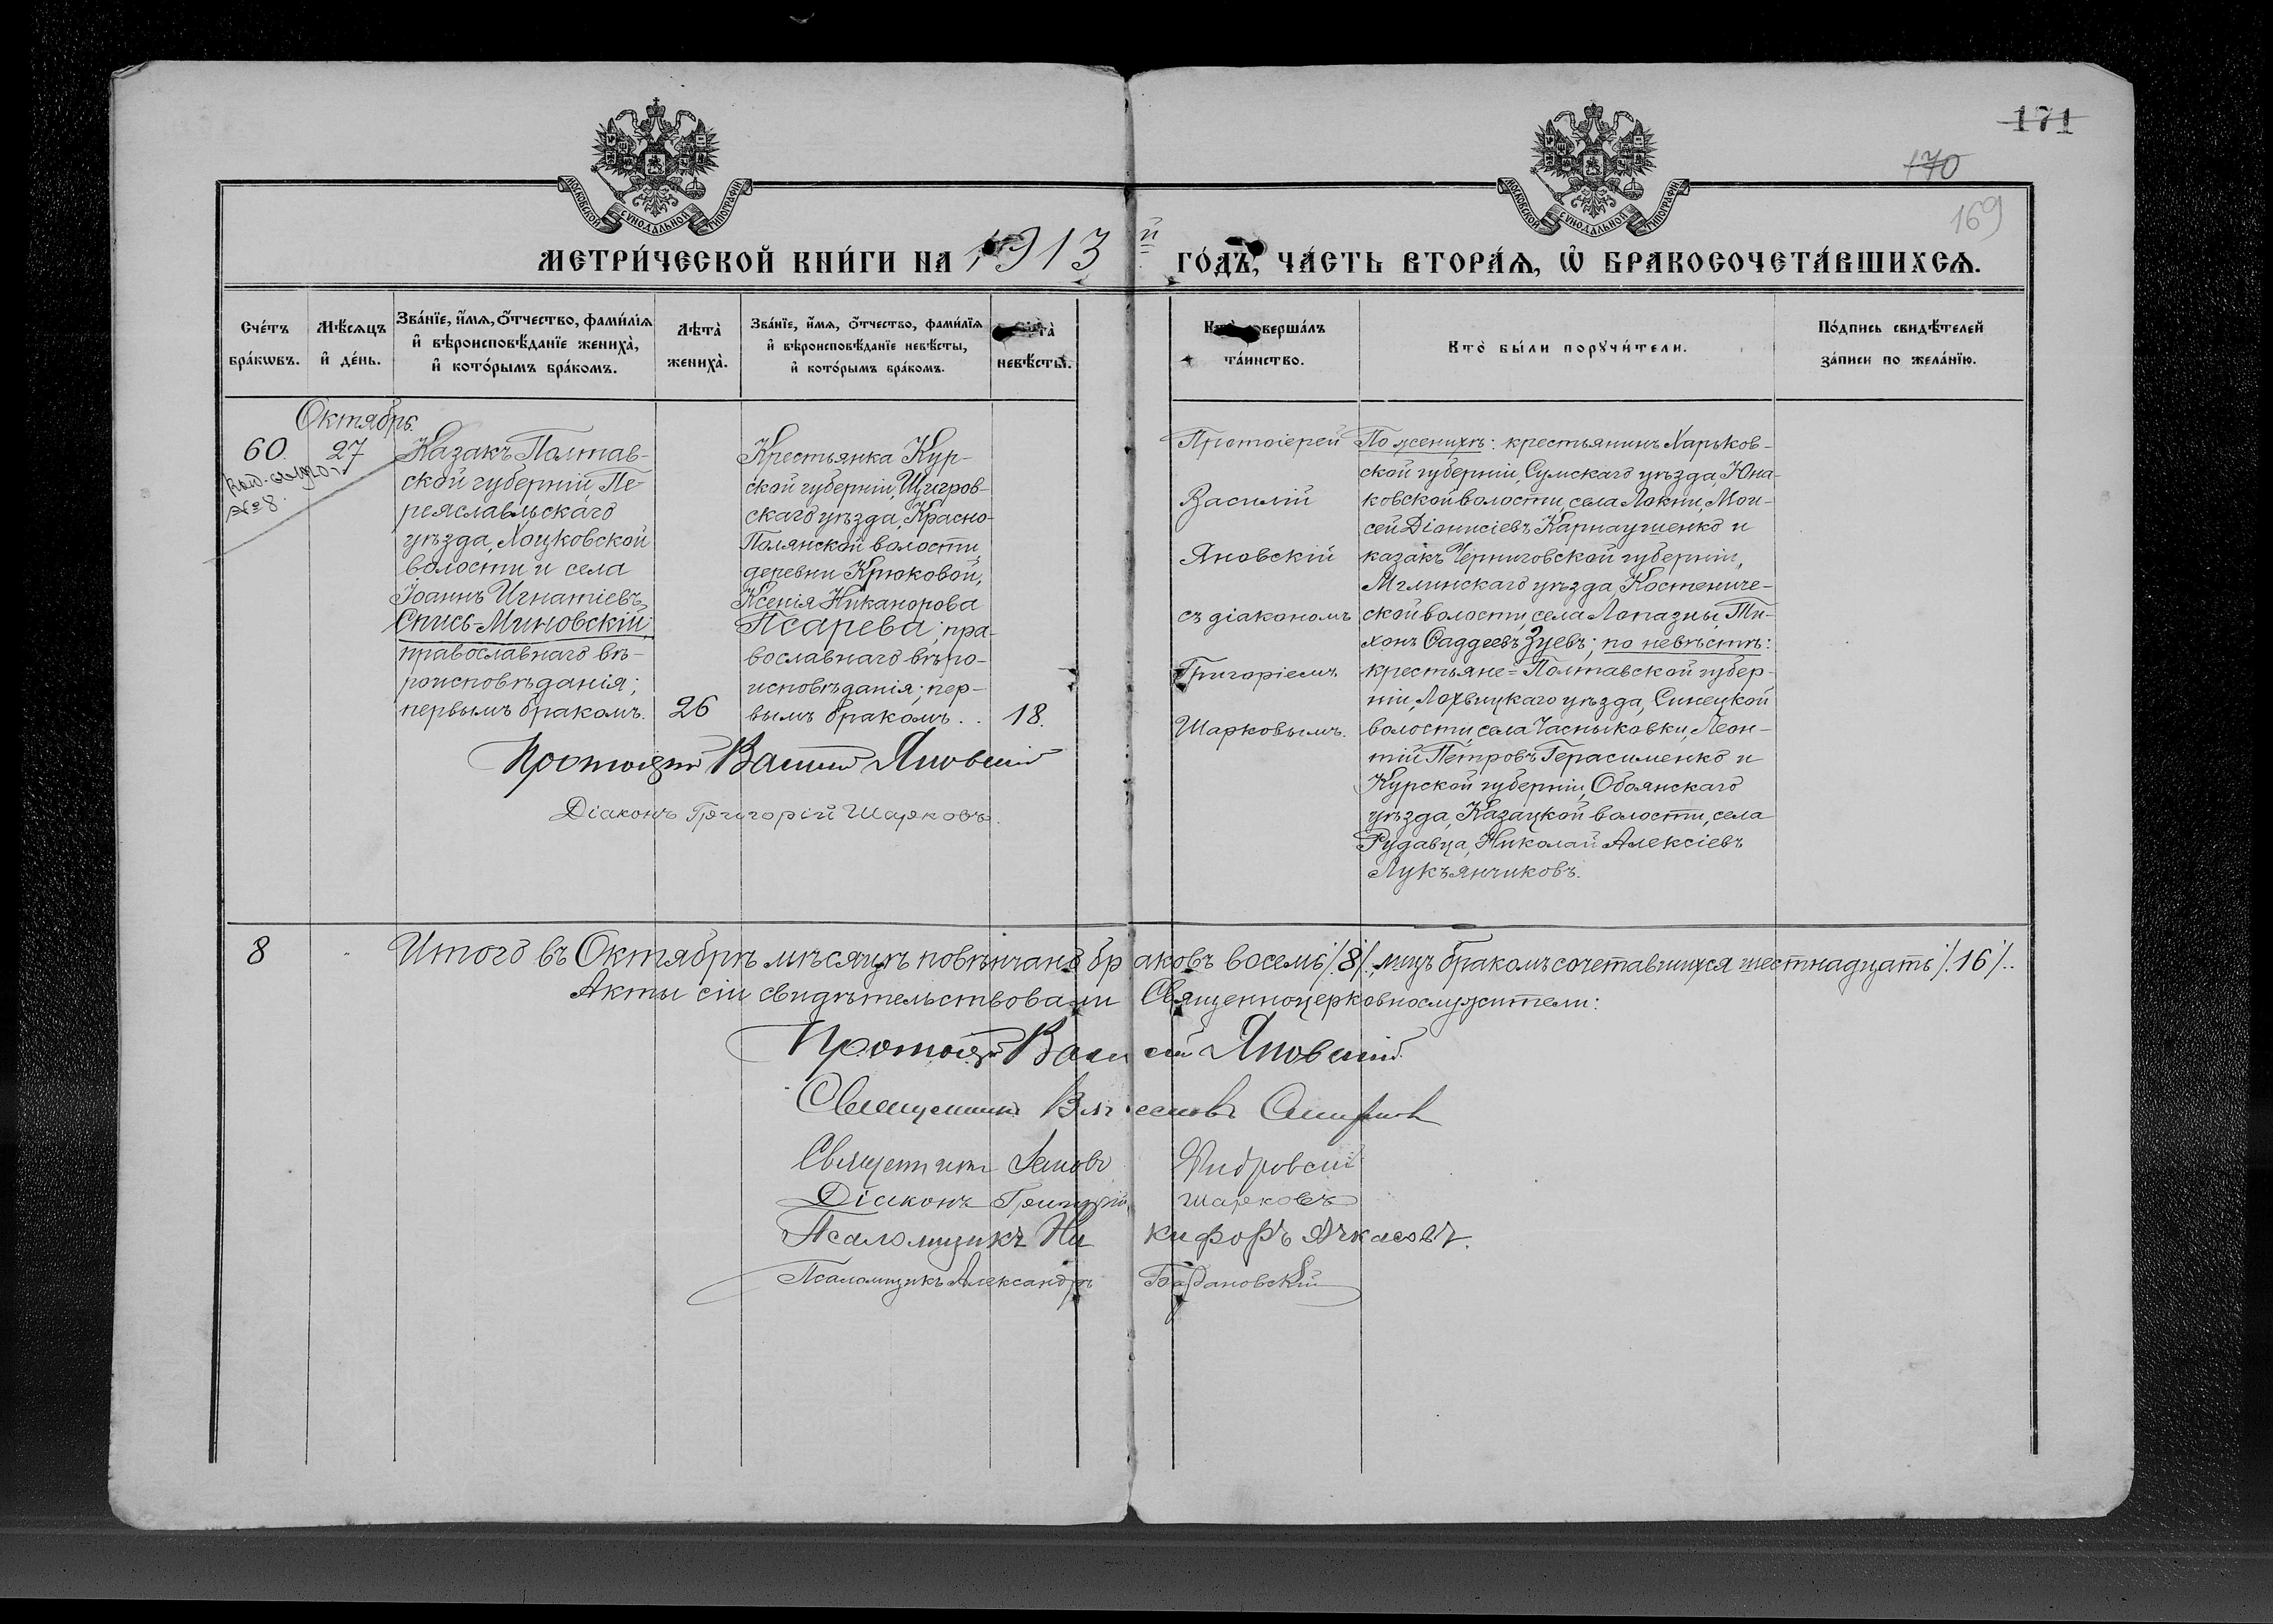 171
170
169
МОСКОВСКОЙ СУНОДАЛЬНОЙ ТИПОГРАФІИ
МОСКОВСКОЙ СУНОДАЛЬНОЙ ТИПОГРАФІИ
МЕТРИ́ЧЕСКОЙ КНИ́ГИ НА 1913 й ГО́ДЪ, ЧА́СТЬ ВТОРА́Ѧ, Ѽ БРАКОСОЧЕТА́ВШИХСѦ.
Сче́тъ
бра́кѡвъ.
Мѣ́сѧцъ
и҆ де́нь.
Зва́нїе, и҆́мѧ, ѻ҆́тчество, фами́лїѧ
и҆ вѣроисповѣ́данїе жениха̀,
и҆ кото́рымъ бра́комъ.
Лѣта̀
жениха̀.
Зва́нїе, и҆́мѧ, ѻ҆́тчество, фами́лїѧ
и҆ вѣроисповѣ́данїе невѣ́сты,
и҆ кото́рымъ бра́комъ.
невѣ́сты.
соверша́лъ
та́инство.
Кто̀ бы́ли порꙋчи́тели.
По́дпись свидѣ́телей
за́писи по жела́нїю.
Октябрь.
60.
27
№ 8.
Казакъ Полтав-
ской губерніи, Пе-
реяславльскаго
уѣзда, Лоцковской
волости и села
Іоаннъ Игнатіевъ
Спись-Миновскій,
православнаго вѣ-
роисповѣданія;
первымъ бракомъ.
26
Крестьянка Кур-
ской губерніи, Щигров-
скаго уѣзда, Красно-
Полянской волости,
деревни Крюковой,
Ксенія Никанорова
Псарева; пра-
вославнаго вѣро-
исповѣданія; пер-
вымъ бракомъ..
18.
Протоіерей Василій Яновскій
Діаконъ Григорій Шарковъ.
Протоіерей
Василій
Яновскій
съ діакономъ
Григоріемъ
Шарковымъ.
По женихѣ: крестьянинъ Харьков-
ской губерніи, Сумскаго уѣзда, Юна-
ковской волости, села Локни, Мои-
сей Діонисіевъ Карнаушенко и
казакъ Черниговской губерніи,
Мглинскаго уѣзда, Костениче-
ской волости, села Лопазны, Ти-
хонъ Фаддеевъ Зуевъ; по невѣстѣ:
крестьяне= Полтавской губер-
ніи, Лохвицкаго уѣзда, Синецкой
волости, села Часныковки, Леон-
тій Петровъ Герасименко и
Курской губерніи, Обоянскаго
уѣзда, Казацкой волости, села
Рудавца, Николай Алексіевъ
Лукъянчиковъ.
8
Итого въ Октябрѣ мѣсяцѣ повѣнчано браковъ восемь /.8/., лицъ бракомъ сочетавшихся шестнадцать /.16/..
Акты сіи свидѣтельствовали Священноцерковнослужители:
Протоіерей Василій Яновскій.
Священникъ
Священникъ Іаковъ
Діаконъ Григорій Шарковъ
Псаломщикъ Никифоръ Ачкасовъ.
Псаломщикъ Александръ Богдановскій